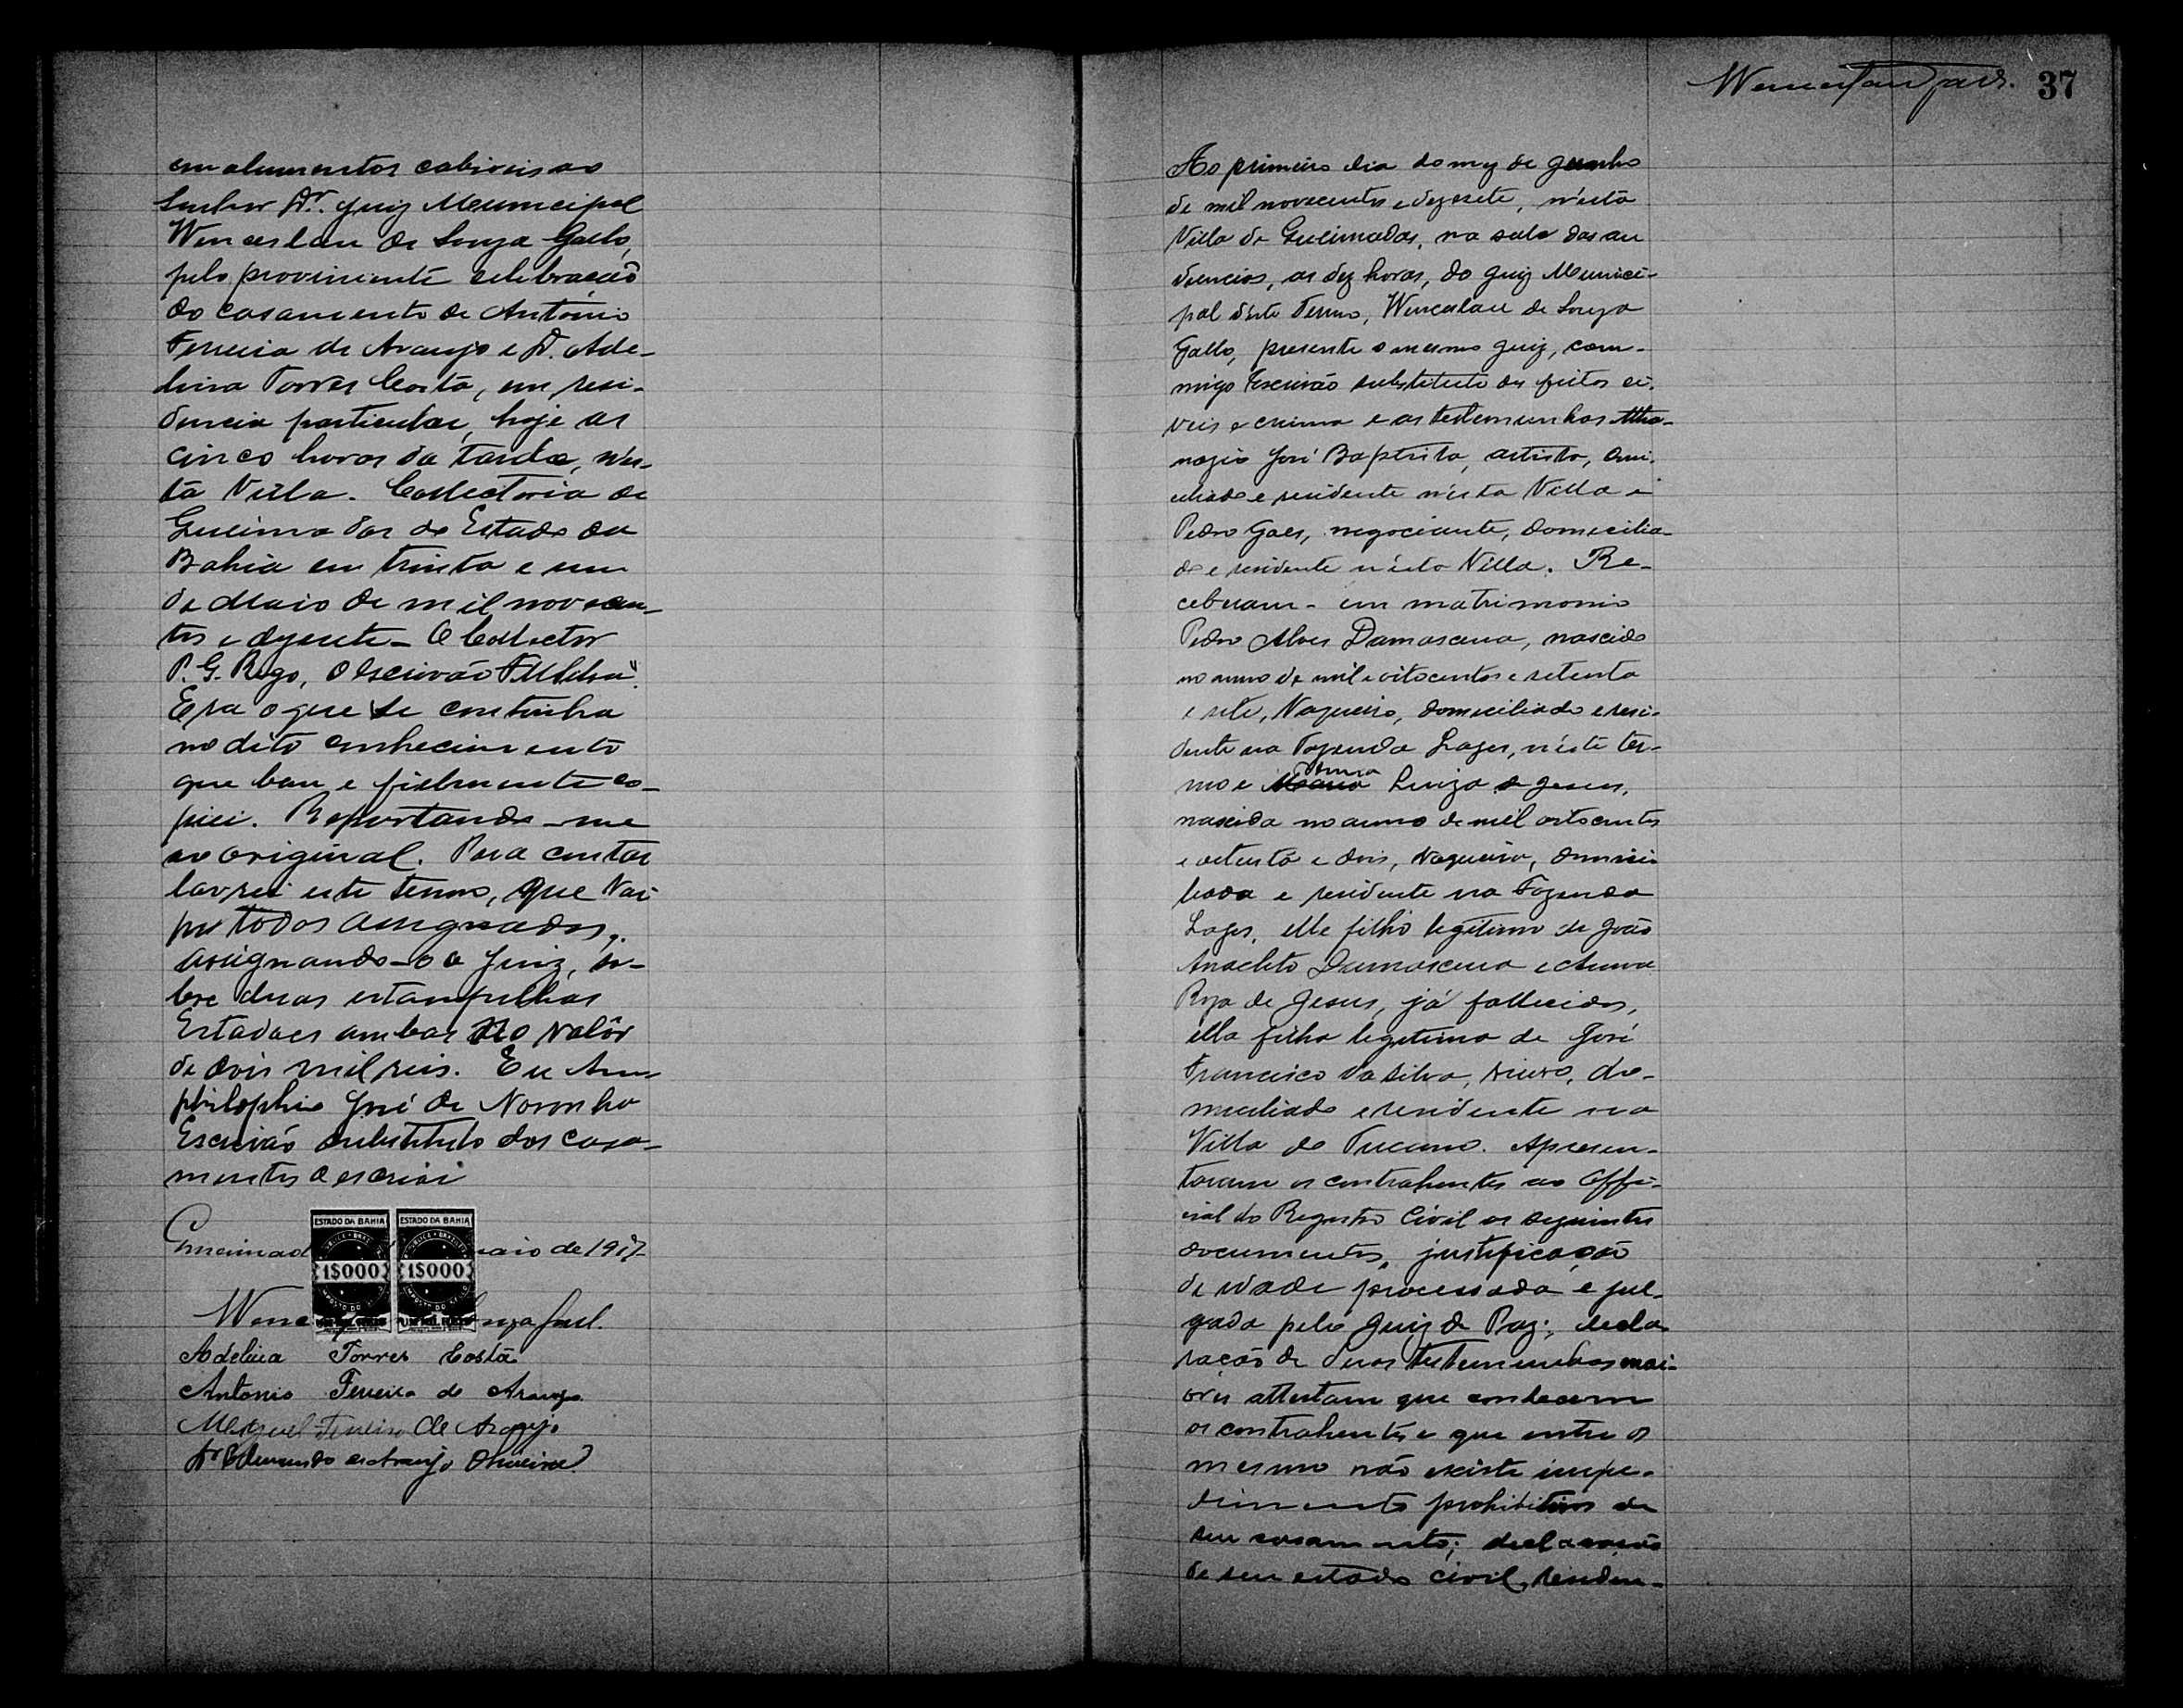 em alumentos cabiveis ao
Senhor Dr. Juiz Meunicipal
Wenceslau de Souza Gallo,
pelo proviniente celebração
do casamento de Antônio
Ferreira de Araujo e D. Ade-
lina Torres Costa, em resi-
dencia particular, hoje as
cinco horas da tarde, n'es-
ta Villa. Collectoria de
Queimadas do Estado da
Bahia em trinta e um
de Maio de mil novecen-
tos e dezesete - O Collector
P. G. Rego, O Escrivão
Era o que se continha
no dito conhecimento
que bem e fielmente co-
piei. Reportando-me
ao original. Para contar
lavrei este termo, que vai
por todos assignados,
assignando-o o Juiz, so-
bre duas estampilhas
Estadaes ambas no valôr
de dois mil reis. Eu Am-
philophio José de Noronha
Escrivão substituto dos casa-
mentos o escrivi
Queimad maio de 1917
ESTADO DA BAHIA ESTADO DA BAHIA
1$000 1$000
Wence
Adelina Torres Costa
Antonio Ferreira de Araujo
Ferreira de Araujo
de Araujo Oliveira
37
Ao primeiro dia do mez de Junho
de mil novecentos e dezesete, n'esta
Villa de Queimadas, na sala das au
diencias, as dez horas, do Juiz Munici-
pal d'este Termo, Wenceslau de Souza
Gallo, presente o mesmo Juiz, com-
migo Escrivão substituto dos feitos ci-
veis e crime e as testemunhas Atha-
nazio José Baptista, artista, domi-
ciliado e residente n'esta Villa e
Pedro Goes, negociante, domicilia-
do e residente n'esta Villa. Re-
ceberam-em matrimonio
Pedro Alves Damascena, nascido
no anno de mil e oitocentos e setenta
e sete, Vaqueiro, domiciliado e resi-
dente na Fazenda Lages, n'este ter-
mo e Maria Luiza de Jesus,
nascida no anno de mil oitocentos
e oitenta e dois, Vaqueira, domici-
liada e residente na Fazenda
Lages, elle filho legitimo de João
Anacleto Damascena e Anna
Roza de Jesus, já fallecidos,
ella filha legitima de José
Francisco da Silva, viuvo, do-
miciliado e residente na
Villa de Tucano. Apresen-
taram os contrahentes ao Offi-
cial do Registro Civil os seguintes
documentos, justificação
de idade processada e jul-
gada pelo Juiz de Paz; decla-
ração de duas testemunhas mai-
ores attestam que conhecem
os contrahentes e que entre os
mesmo não existe impe-
dimento prohibitivos de
seu casamento; declaração
de seu estado civil, residen-